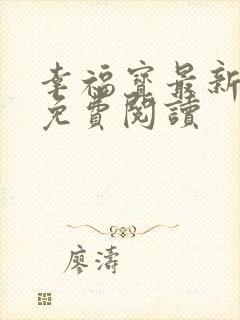 幸福寶最新
免費閱讀
廖濤